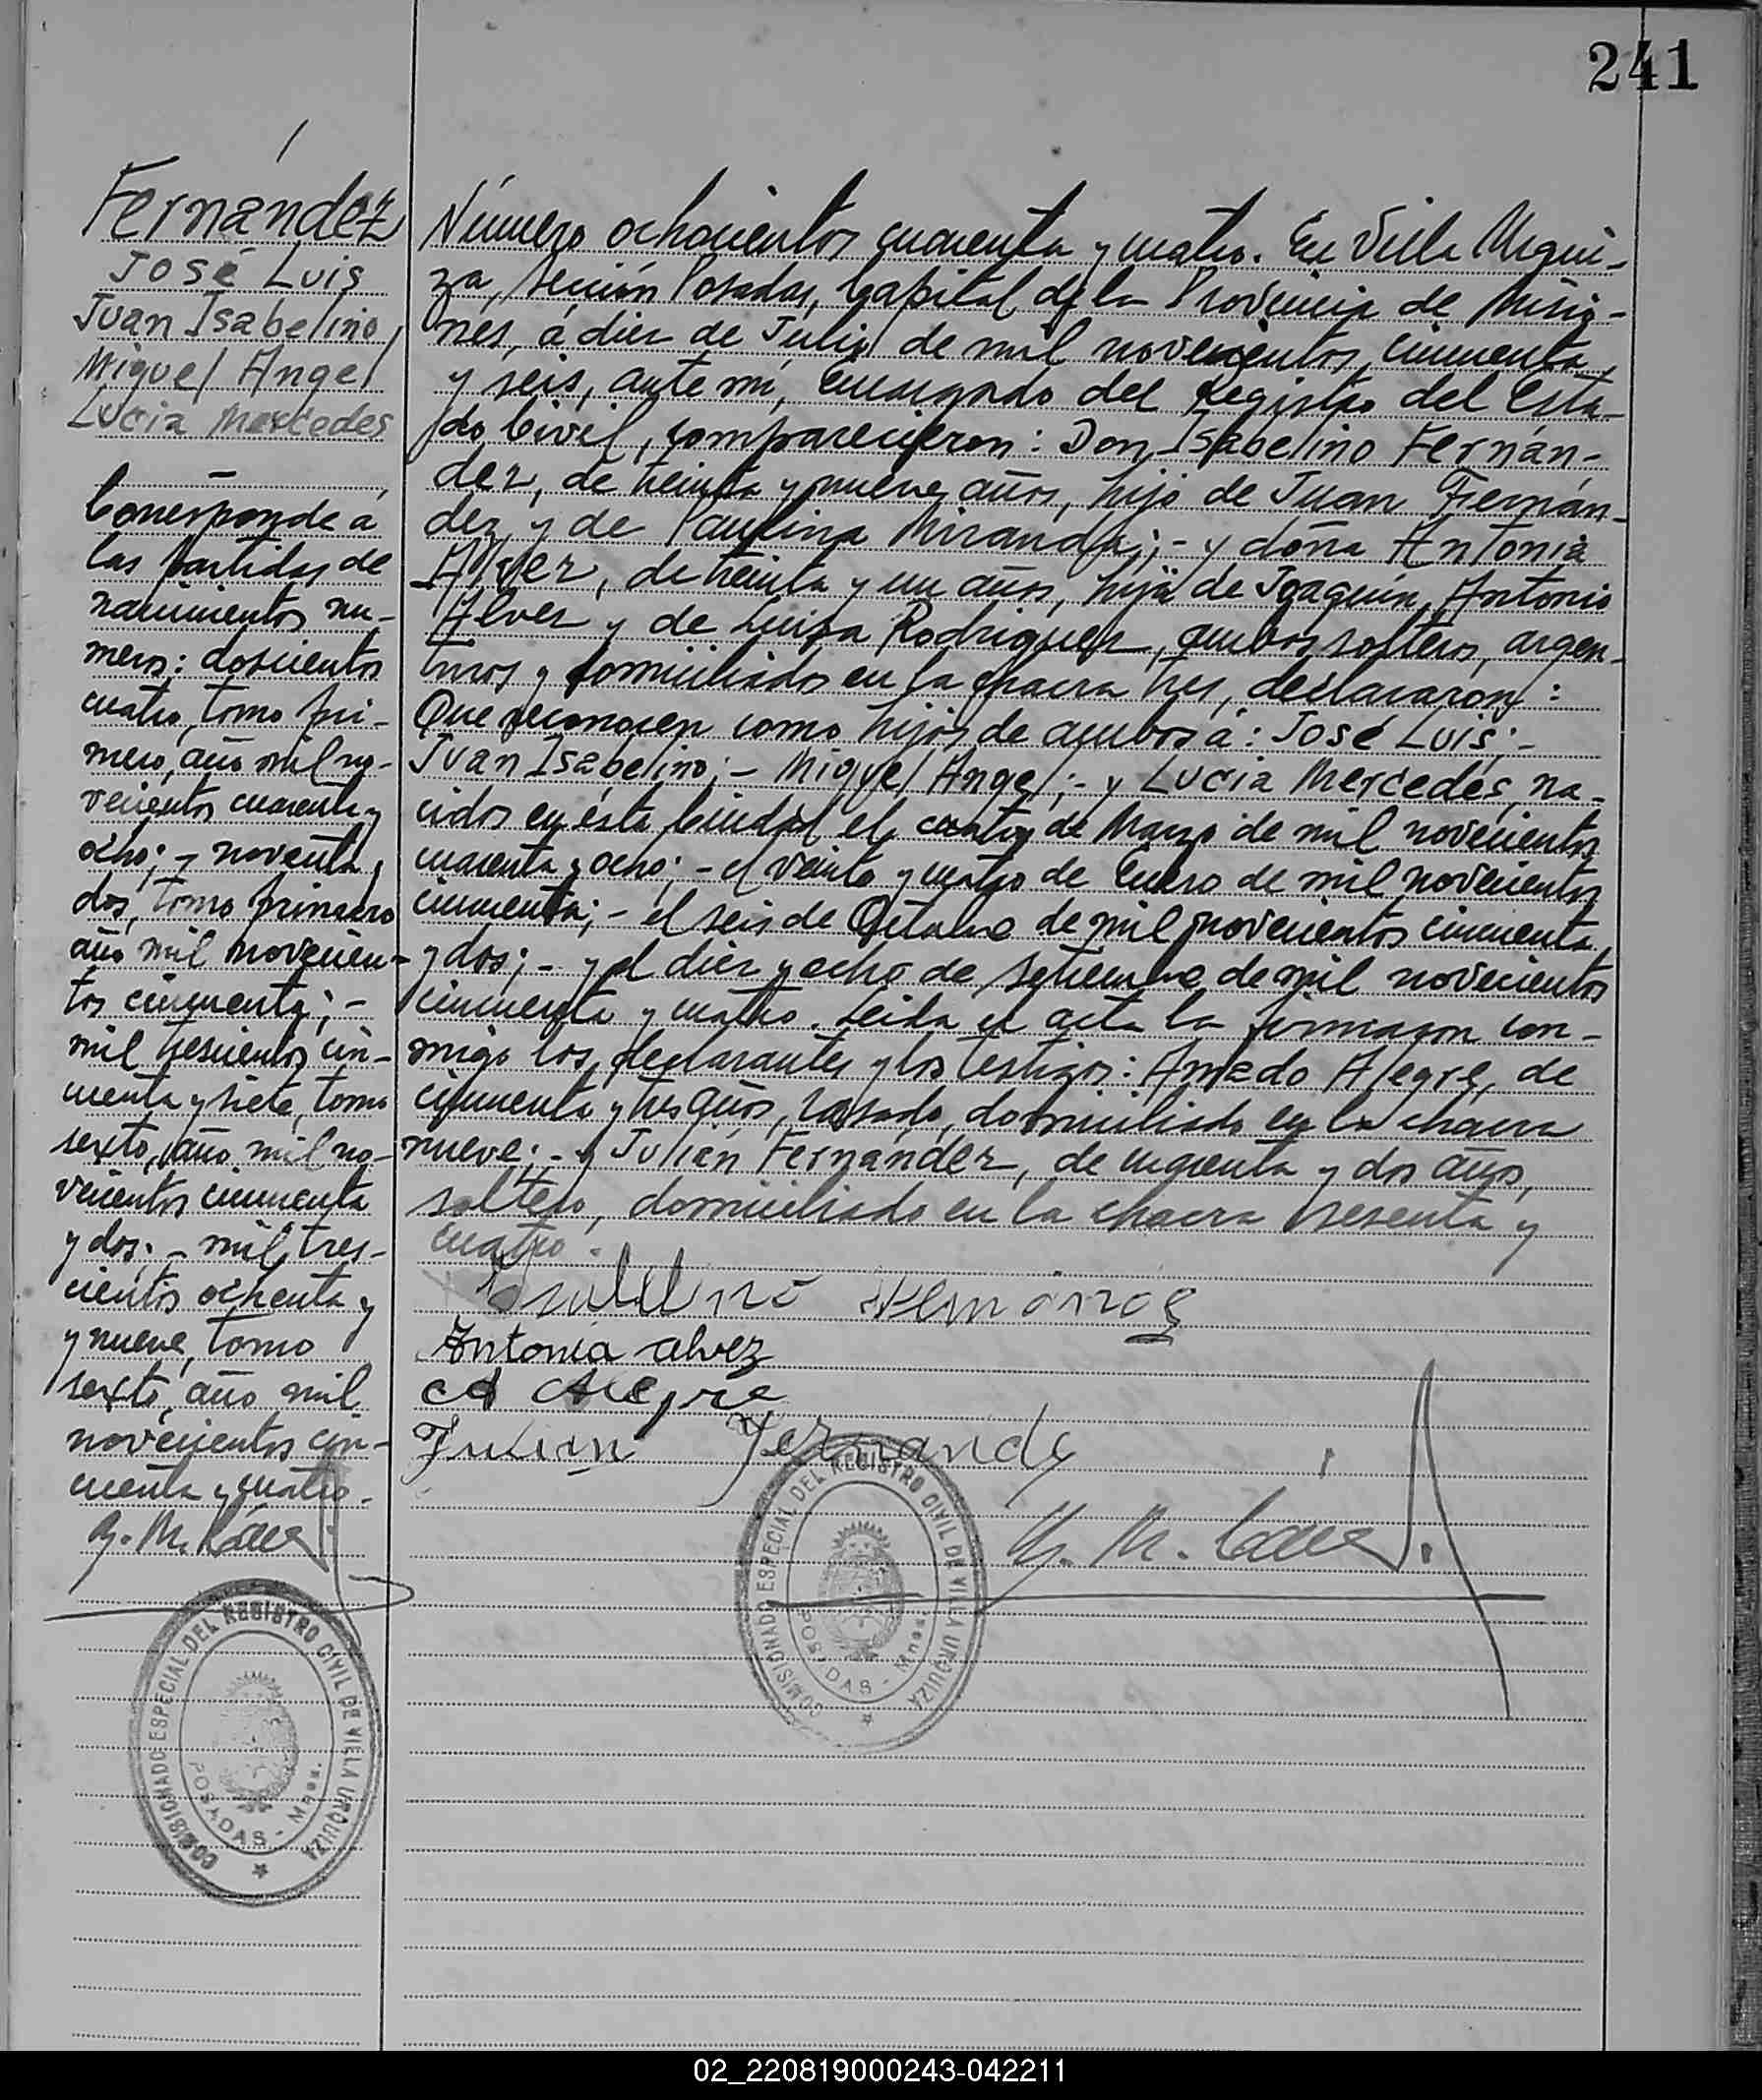 241
Fernández
José Luis
Juan Isabelino,
Miguel Angel
Lucia Mercedes
Corresponde á
las partidas de
nacimientos nú-
meros: doscientos
cuatro, tomo pri-
mero, año mil no-
vecientos cuarenta y
ocho; - noventa y
dos, tomo primero
año mil novecien-
tos cincuenta; -
mil trescientos cin-
cuenta y siete, tomo
sexto, año mil no-
vecientos cincuenta
y dos; - mil tres-
cientos ochenta y
y nueve, tomo
sexto, año mil
novecientos cin-
cuenta y cuatro.
Número ochocientos cuarenta y cuatro. En Villa Urqui-
za, sección Posadas, Capital de la Provincia de Misio-
nes, á diez de Julio de mil novecientos cincuenta
y seis, ante mí, Encargado del Registro del Esta-
do Civil, comparecieron: Don Isabelino Fernán-
dez, de treinta y nueve años, hijo de Juan Fernán-
dez y de Paulina Miranda; - y doña Antonia
Alvez, de treinta y un años, hija de Joaquín Antonio
Alvez y de Luisa Rodriguez, ambos solteros, argen-
tinos y domiciliados en la chacra tres, declararon:
Que reconocen como hijos de ambos á: José Luis; -
Juan Isabelino; - Miguel Angel; - y Lucia Mercedes, na-
cidos en ésta Ciudad el cuatro de Marzo de mil novecientos
cuarenta y ocho; - el veinte y cuatro de Enero de mil novecientos
cincuenta; - el seis de Octubre de mil novecientos cincuenta
y dos; - y el diez y ocho de setiembre de mil novecientos
cincuenta y cuatro. Leída el acta la firmaron con-
migo los declarantes y los testigos: Amado Alegre, de
cincuenta y tres años, casado, domiciliado en la chacra
nueve; - y Julián Fernández, de cuarenta y dos años,
soltero, domiciliado en la chacra sesenta y
cuatro.
Antonia alvez
A Alegre
Julian Fernandez
COMISIONADO ESPECIAL DEL REGISTRO CIVIL DE VILLA URQUIZA
POSADAS - Mnes.
COMISIONADO ESPECIAL DEL REGISTRO CIVIL DE VILLA URQUIZA
POSADAS - Mnes.
02_220819000243-042211